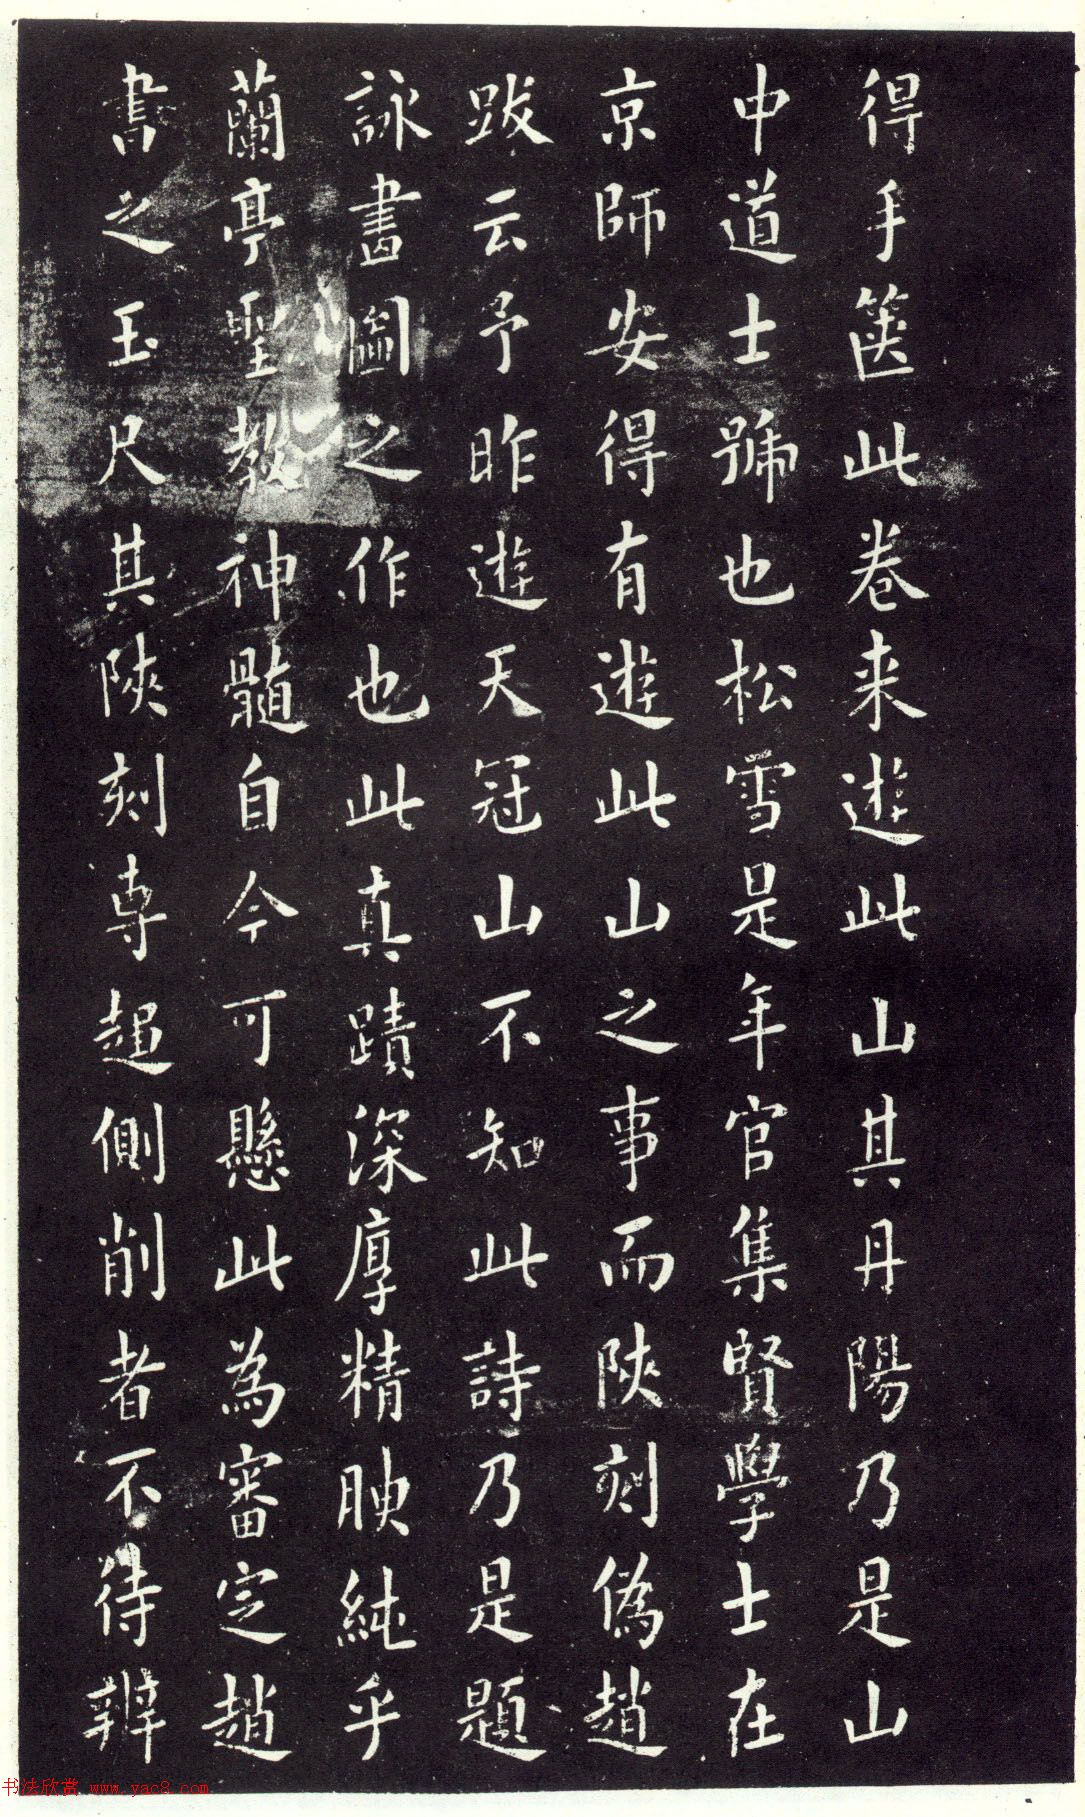 得手箧此卷来遊此山其丹陽乃是山
中道士號也松雪是年官集賢學士在
京師安得有遊此山之事而陝刻偽趙
跋云予昨遊天冠山不知此詩乃是題
詠畫圖之作也此真蹟深厚精腴純乎
蘭亭聖教神髓自今可懸此為審定趙
書之玉尺其陝刻專趨側削者不待辨
书法欣赏 www.yac8.com